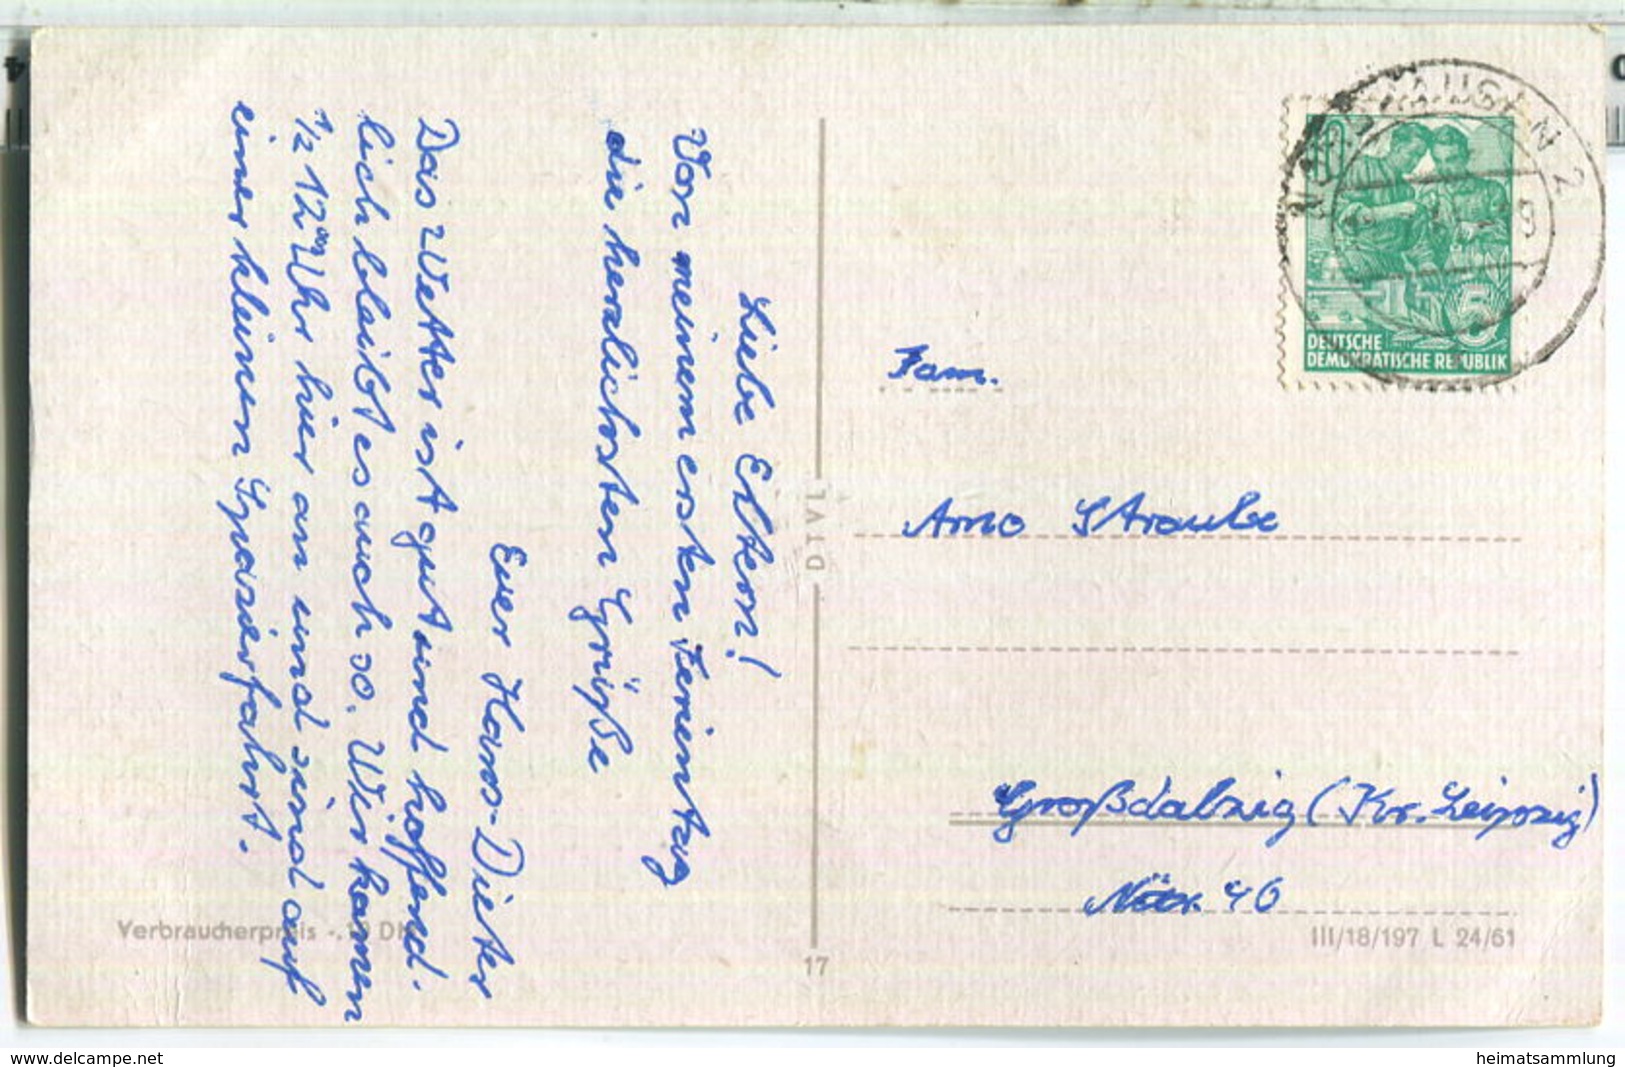 Liebe Eltern!
Von meinem ersten Ferientag
die herzlichsten Grüße
Euer Hans-Dieter
Das Wetter ist gut und hoffend.
lich bleibt es auch so. Wir kamen
1/2 12 Uhr hier an und sind auf
einer kleinen Spazierfahrt.
Verbraucherpreis -.10 DM
DTVL
17
10
5
DEUTSCHE
DEMOKRATISCHE REPUBLIK
2
Fam.
Arno Straube
Großdalzig (Kr. Leipzig)
Nr. 46
III/18/197 L 24/61
www.delcampe.net
heimatsammlung